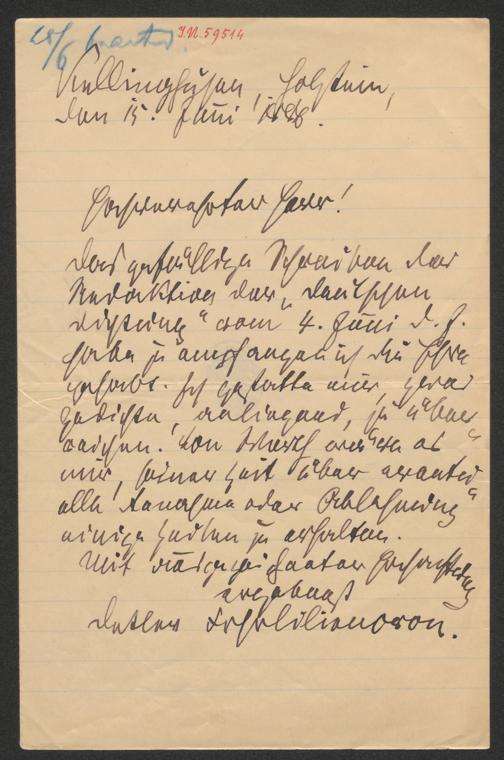 28/6 beantw.
I.N. 59514
Kellinghusen, Holstein,
den 15. Juni 1888.
Hochverehrter Herr!
Das gefällige Schreiben der
Redaktion der „Deutschen
Dichtung“ vom 4. Juni d. J.
habe zu empfangen ich die Ehre
gehabt. Ich gestatte mir,
Gedichte, anliegend, zu über
reichen. Von Werth wäre es
mir, seiner Zeit über eventu
elle Annahme oder Ablehnung
einige Zeilen zu erhalten.
Mit ausgezeichneter Hochachtung
ergebenst
Detlev Frhr Liliencron.